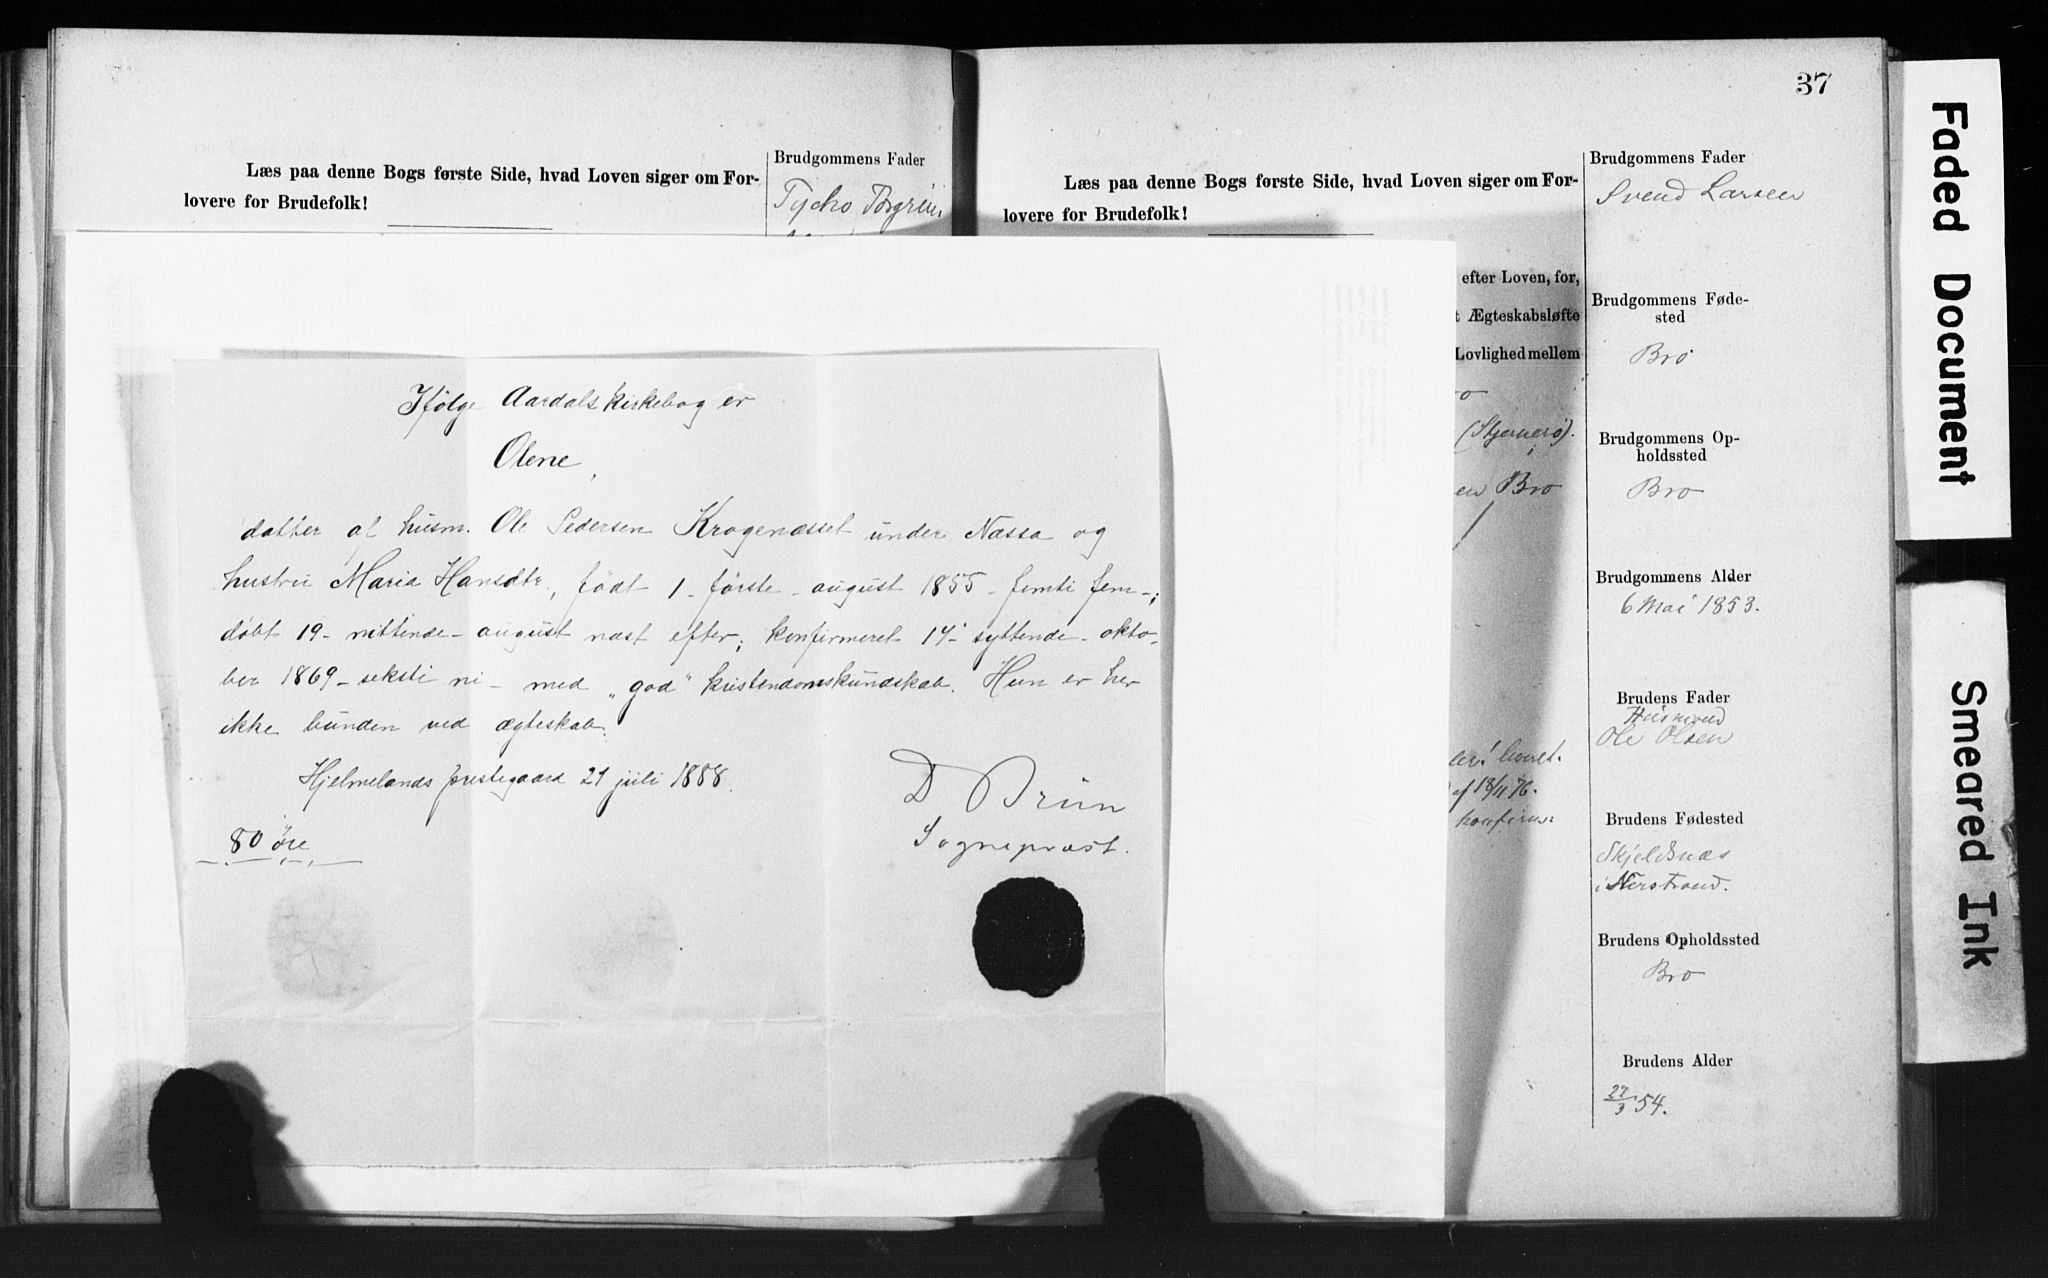 Læs paa denne Bogs første Side, hvad Loven siger om For-
lovere for Brudefolk!
Brudgommens Fader
Tycho Torgrim
Ifølge Aardals kirkebog er
Olene,
datter af husm. Ole Pedersen Krogenæsset under Næssa og
hustru Maria Hansdtr., født 1 - første - august 1855 - femti fem -;
døbt 19 - nittende - august næst efter; konfirmeret 17 - syttende - okto-
ber 1869 - seksti ni - med „god“ kristendomskundskab. Hun er her
ikke bunden ved ægteskab.
Hjelmelands prestegaard 21 juli 1888.
D Brun
Sognepræst.
80 øre
37
Læs paa denne Bogs første Side, hvad Loven siger om For-
lovere for Brudefolk!
efter Loven, for,
t Ægteskabsløfte
Lovlighed mellem
o
(Stjernerø).
en Bro
ler! lovet.
af 18/11 76.
konfirm:
Brudgommens Fader
Svend Larsen
Brudgommens Føde-
sted
Bro
Brudgommens Op-
holdssted
Bro
Brudgommens Alder
6 Mai 1853.
Brudens Fader
Husmand
Ole Olsen
Brudens Fødested
Skjeldsnæs
i Nerstrand.
Brudens Opholdssted
Bro
Brudens Alder
22/3 54.
Faded Document
Smeared Ink